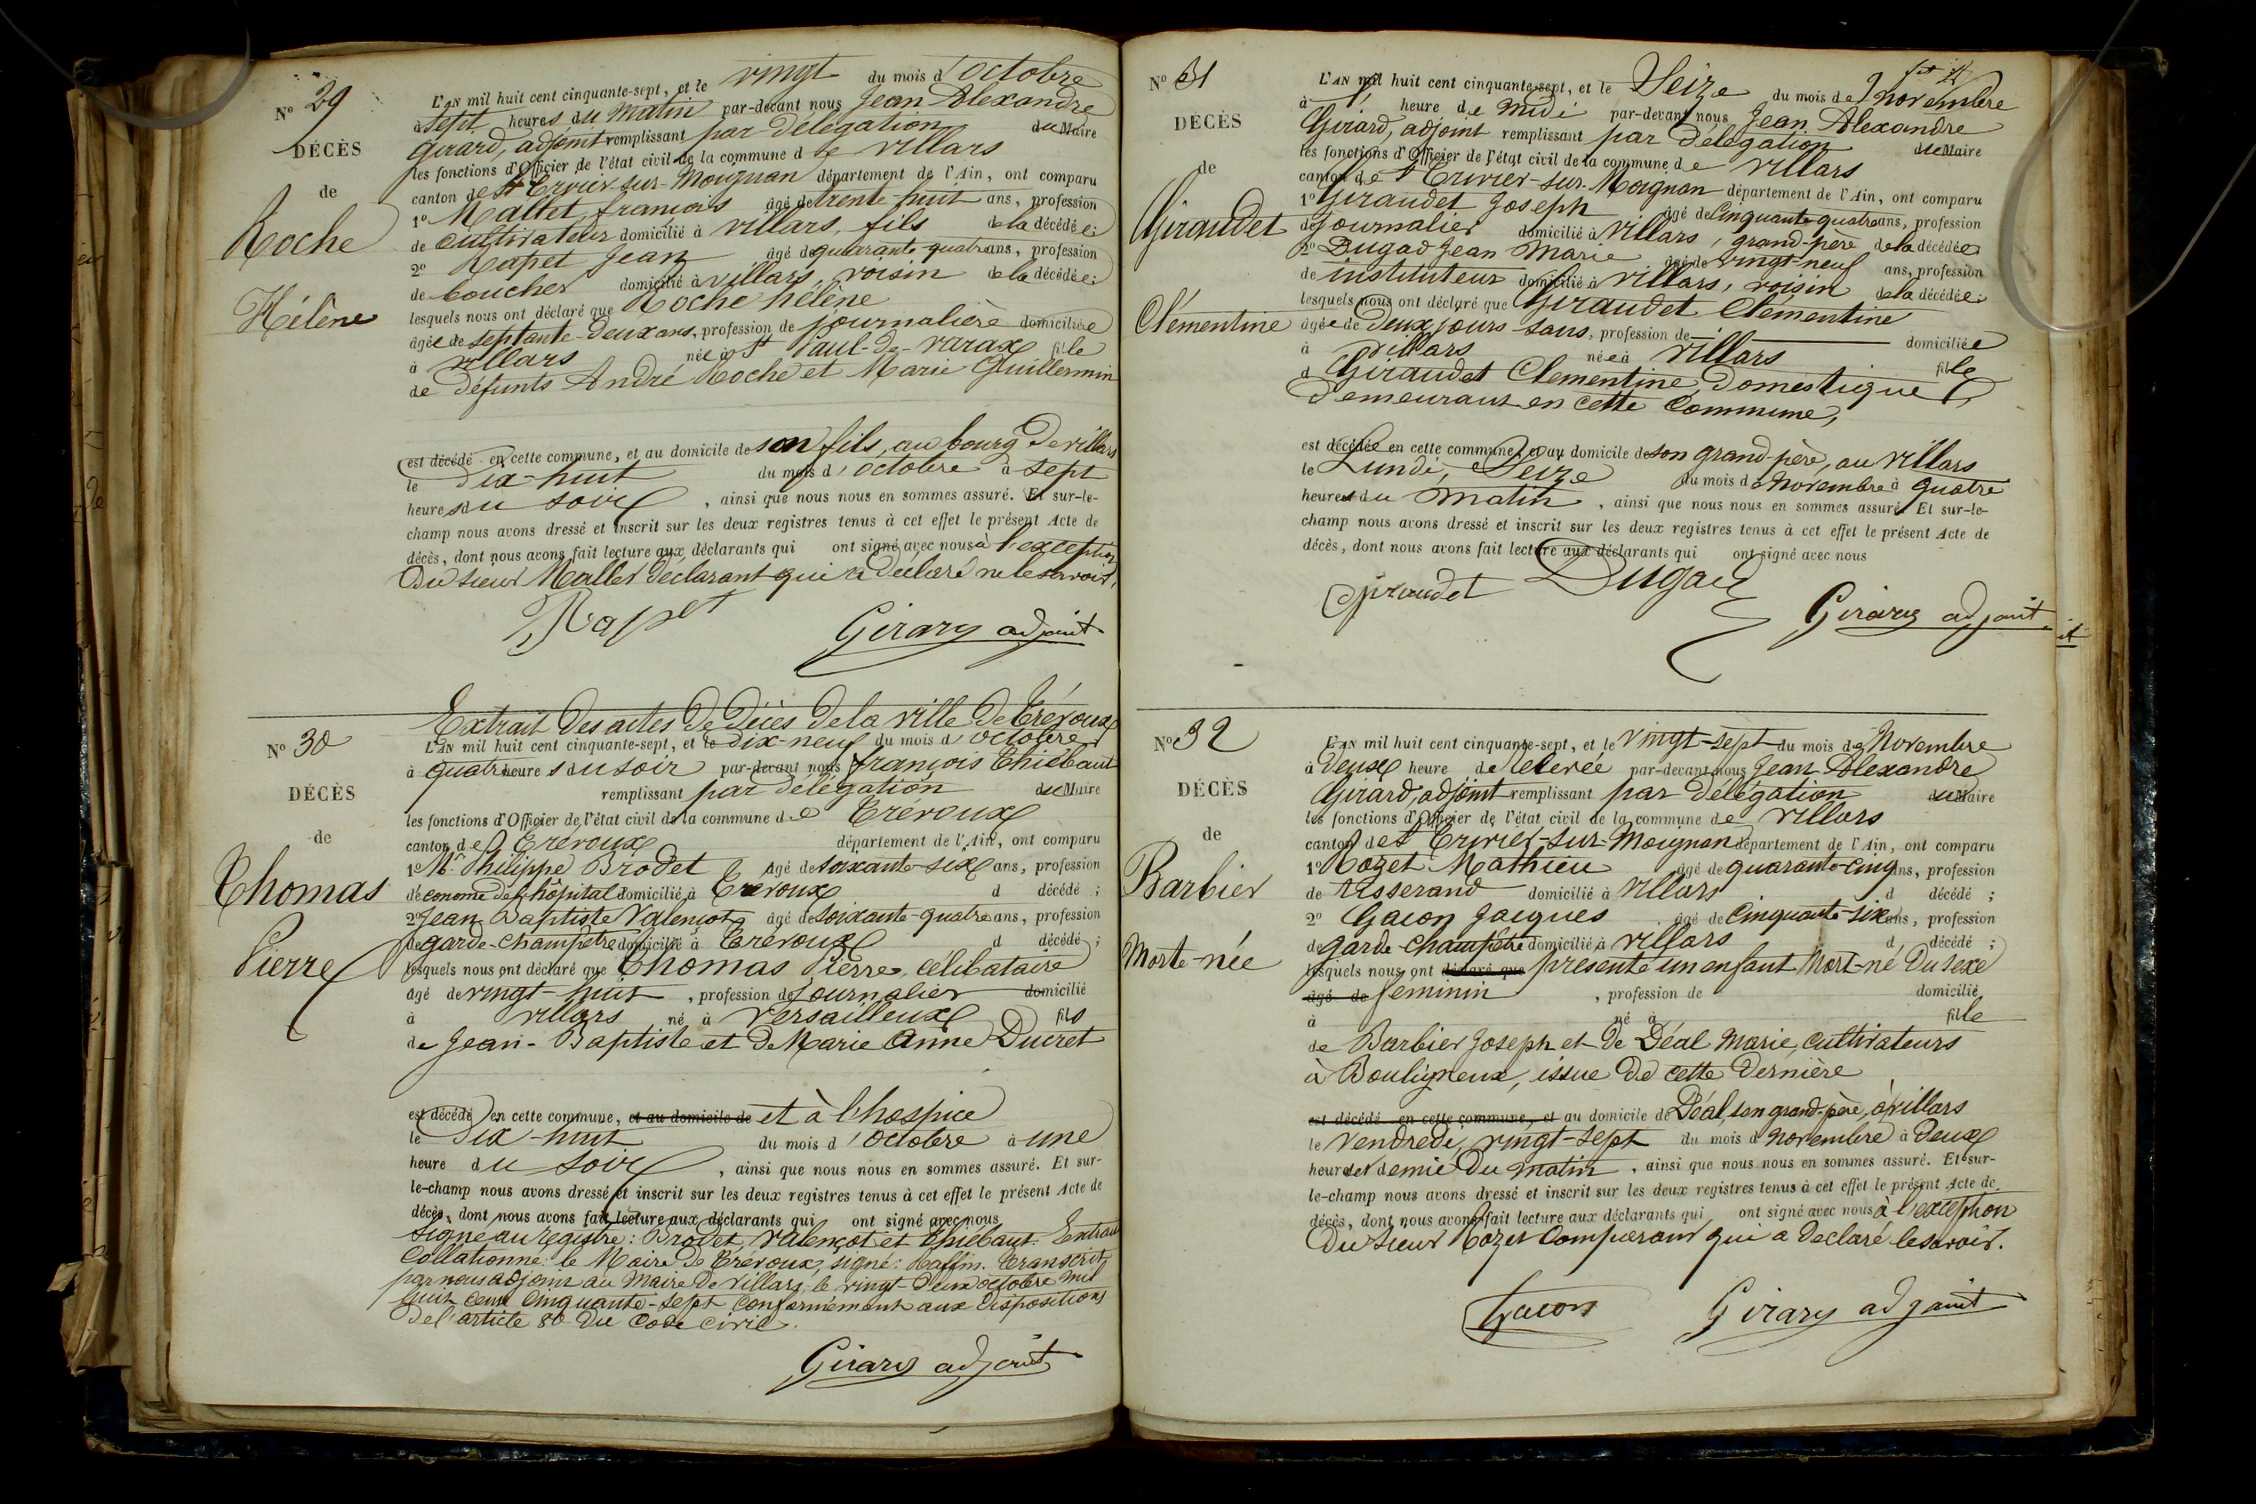 N° 29
DÉCÈS
de
Roche
Hélène
L'AN mil huit cent cinquante-sept, et le vingt du mois d'octobre
à sept heures du matin par-devant nous Jean Alexandre
Girard, adjoint remplissant par délégation du Maire
les fonctions d'Officier de l'état civil de la commune de villars
canton de St Trivier-sur-Moignan département de l'Ain, ont comparu
1° Mallet françois âgé de trente-huit ans, profession
de cultivateur domicilié à villars, fils de la décédée;
2° Rapet Jean âgé de quarante-quatre ans, profession
de boucher domicilié à villars, voisin de la décédée;
lesquels nous ont déclaré que Roche hélène
âgée de septante-deux ans, profession de journalière domiciliée
à villars née à St Paul-de-varax fille
de défunts André Roche et Marie Guillermin
est décédé en cette commune, et au domicile de son fils, au bourg de villars
le dix-huit du mois d'octobre à sept
heures du soir, ainsi que nous nous en sommes assuré. Et sur-le-
champ nous avons dressé et inscrit sur les deux registres tenus à cet effet le présent Acte de
décès, dont nous avons fait lecture aux déclarants qui ont signé avec nous à l'exception
du sieur Mallet déclarant qui a déclaré ne le savoir.
Rapet Girard adjoint
N° 30
DÉCÈS
de
Thomas
Pierre
Extrait des actes de Décès de la ville de Trévoux
L'AN mil huit cent cinquante-sept, et le dix-neuf du mois d'octobre
à quatre heures du soir par-devant nous françois Thiébaut
remplissant par délégation du Maire
les fonctions d'Officier de l'état civil de la commune de Trévoux
canton de Trévoux département de l'Ain, ont comparu
1° Mr. Philippe Brodet âgé de soixante-six ans, profession
de économe de l'hôpital domicilié à Trévoux d décédé;
2° Jean Baptiste Valençot âgé de soixante-quatre ans, profession
de garde-champêtre domicilié à Trévoux d décédé;
lesquels nous ont déclaré que Thomas Pierre, célibataire
âgé de vingt-huit, profession de Journalier domicilié
à villars né à Versailleux fils
de Jean-Baptiste et de Marie Anne Ducret
est décédé en cette commune, et au domicile de et à l'hospice
le Dix-huit du mois d'octobre à une
heure du soir, ainsi que nous nous en sommes assuré. Et sur-
le-champ nous avons dressé et inscrit sur les deux registres tenus à cet effet le présent Acte de
décès, dont nous avons fait lecture aux déclarants qui ont signé avec nous
signé au registre: Brodet, Valençot et Thiébaut. Extrait
Collationné: le Maire de Trévoux, signé: Raffin. Transcrit
par nous adjoint au Maire de villars, le vingt-deux octobre mil
huit cent cinquante-sept conformément aux dispositions
de l'article 80 du Code Civil.
Girard adjoint
N° 31
DÉCÈS
de
Giraudet
Clémentine
L'AN mil huit cent cinquante-sept, et le Seize du mois de novembre
à heure de midi par-devant nous Jean Alexandre
Girard, adjoint remplissant par délégation du Maire
les fonctions d'Officier de l'état civil de la commune de villars
canton de St Trivier-sur-Moignan département de l'Ain, ont comparu
1° Giraudet Joseph âgé de Cinquante-quatre ans, profession
de Journalier domicilié à villars, grand-père de la décédée
2° Dugad Jean Marie âgé de vingt-neuf ans, profession
de instituteur domicilié à villars, voisin de la décédée;
lesquels nous ont déclaré que Giraudet Clémentine
âgée de deux jours sans, profession de domiciliée
à villars née à villars fille
d Giraudet Clementine, Domestique
Demeurant en cette Commune,
est décédée en cette commune, et au domicile de son grand-père, au villars
le Lundi, Seize du mois de novembre à quatre
heures du matin, ainsi que nous nous en sommes assuré. Et sur-le-
champ nous avons dressé et inscrit sur les deux registres tenus à cet effet le présent Acte de
décès, dont nous avons fait lecture aux déclarants qui ont signé avec nous
Giraudet Dugad
Girard adjoint
N° 32
DÉCÈS
de
Barbier
Morte-née
L'AN mil huit cent cinquante-sept, et le vingt-sept du mois de Novembre
à Deux heure de Relevée par-devant nous Jean Alexandre
Girard, adjoint remplissant par Délégation du Maire
les fonctions d'Officier de l'état civil de la commune de villars
canton de St Trivier-sur-Moignan département de l'Ain, ont comparu
1° Rozet Mathieu âgé de quarante-cinq ans, profession
de tisserand domicilié à villars d décédé;
2° Gacon Jacques âgé de Cinquante-six ans, profession
de garde-champêtre domicilié à villars d décédé;
lesquels nous ont déclaré que présenté un enfant Mort-né Du sexe
âgé de feminin, profession de domicilié
à né à fille
de Barbier Joseph et de Déal Marie, cultivateurs
à Bouligneux, issue de cette dernière
est décédé en cette commune, et au domicile de Déal, son grand-père, à villars
le vendredi, vingt-sept du mois de novembre à Deux
heures et demie Du matin, ainsi que nous nous en sommes assuré. Et sur-
le-champ nous avons dressé et inscrit sur les deux registres tenus à cet effet le présent Acte de
décès, dont nous avons fait lecture aux déclarants qui ont signé avec nous à l'exception
Du sieur Rozet Comparant qui a Declaré le savoir.
Gacon Girard adjoint